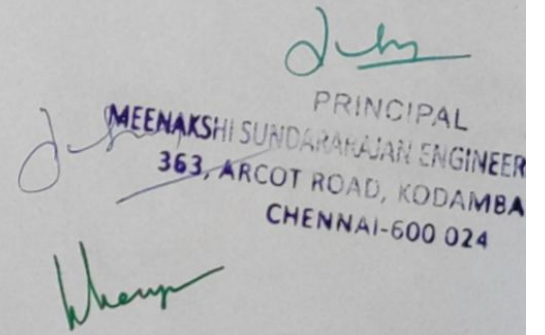 PRINCIPAL
MEENAKSHI SUNDARARAJAN ENGINEER
363, ARCOT ROAD, KODAMBA
CHENNAI-600 024